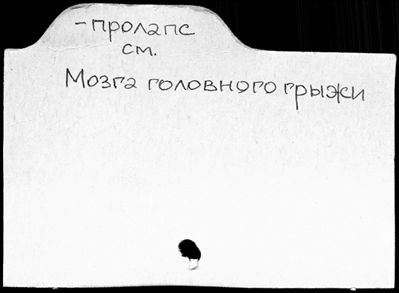 -пролапс
см.
Мозга головного грыжи